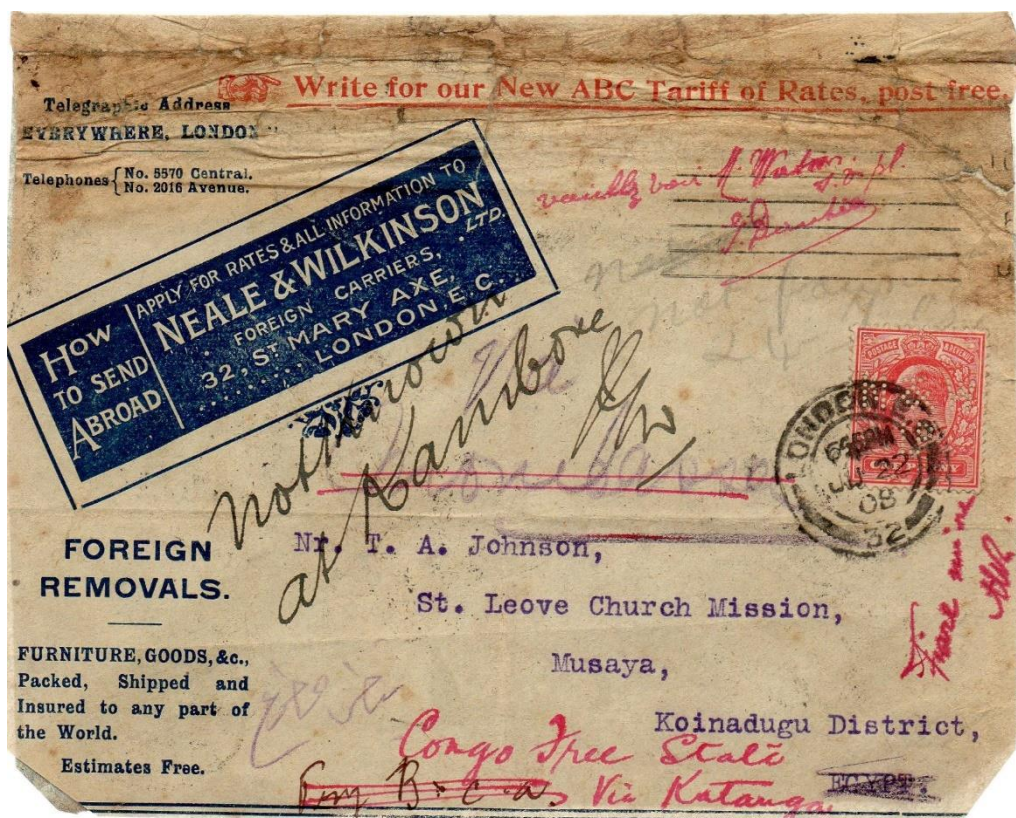 Write for our New ABC Tariff of Rates, post free.
Telegraphic Address
EVERYWHERE, LONDON"
Telephones { No. 5570 Central.
No. 2016 Avenue.
HOW TO SEND ABROAD
APPLY FOR RATES & ALL INFORMATION TO
NEALE & WILKINSON LTD.
FOREIGN CARRIERS,
32, ST MARY AXE,
LONDON, E.C.
POSTAGE REVENUE
LONDON
JU 22
08
32
not known
at Kambove
FOREIGN
REMOVALS.
FURNITURE, GOODS, &c.,
Packed, Shipped and
Insured to any part of
the World.
Estimates Free.
Nr. T. A. Johnson,
St. Leove Church Mission,
Musaya,
Koinadugu District,
EGYPT.
Congo Free State
Via Katanga
Try B.C.A.